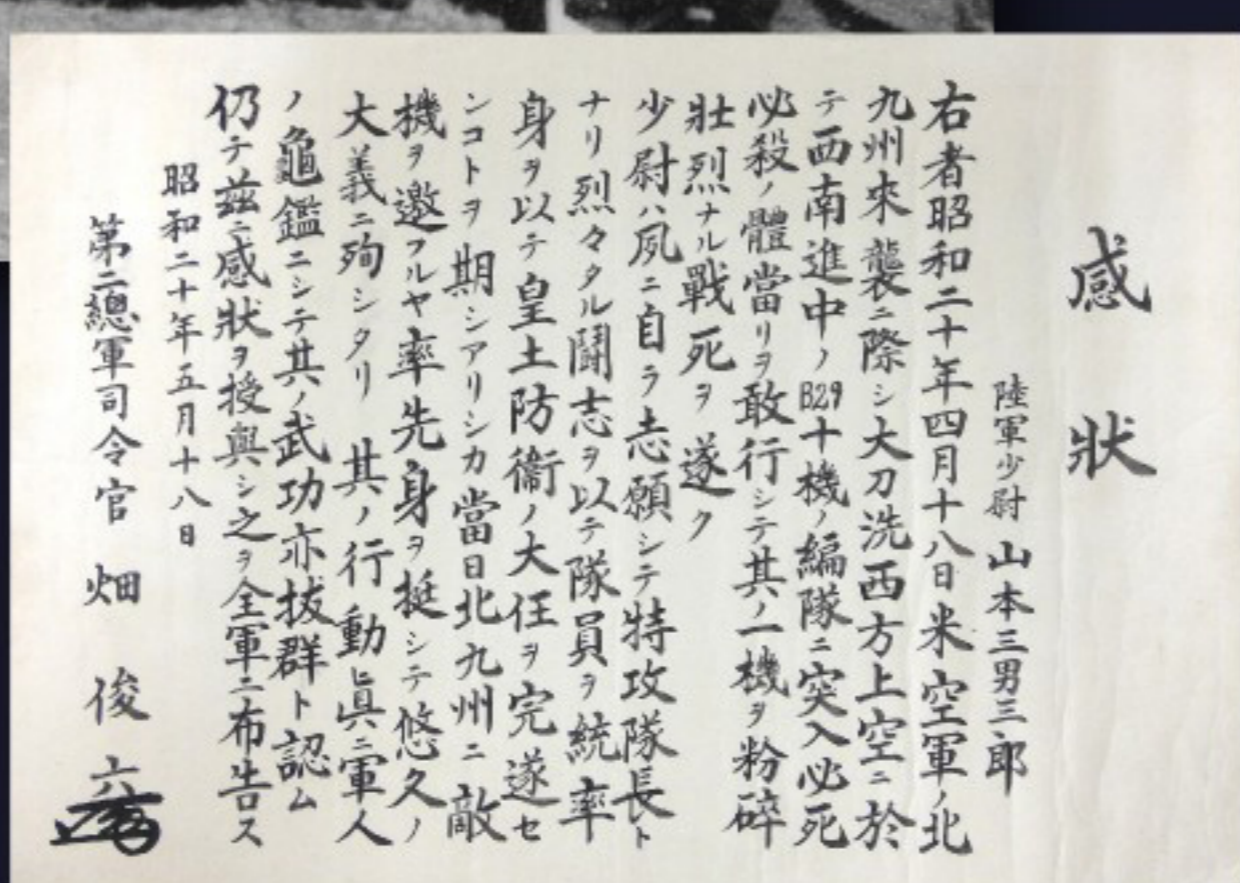 感狀
陸軍少尉 山本三男三郎
右者昭和二十年四月十八日米空軍ノ北
九州來襲ニ際シ大刀洗西方上空ニ於
テ西南進中ノB29十機ノ編隊ニ突入必死
必殺ノ體當リヲ敢行シテ其ノ一機ヲ粉碎
壯烈ナル戰死ヲ遂ク
少尉ハ夙ニ自ラ志願シテ特攻隊長ト
ナリ烈々タル鬪志ヲ以テ隊員ヲ統率
身ヲ以テ皇土防衞ノ大任ヲ完遂セ
ンコトヲ期シアリシカ當日北九州ニ敵
機ヲ邀フルヤ率先身ヲ挺シテ悠久ノ
大義ニ殉シタリ 其ノ行動眞ニ軍人
ノ龜鑑ニシテ其ノ武功亦拔群ト認ム
仍テ茲ニ感狀ヲ授與シ之ヲ全軍ニ布告ス
昭和二十年五月十八日
第二總軍司令官 畑 俊六